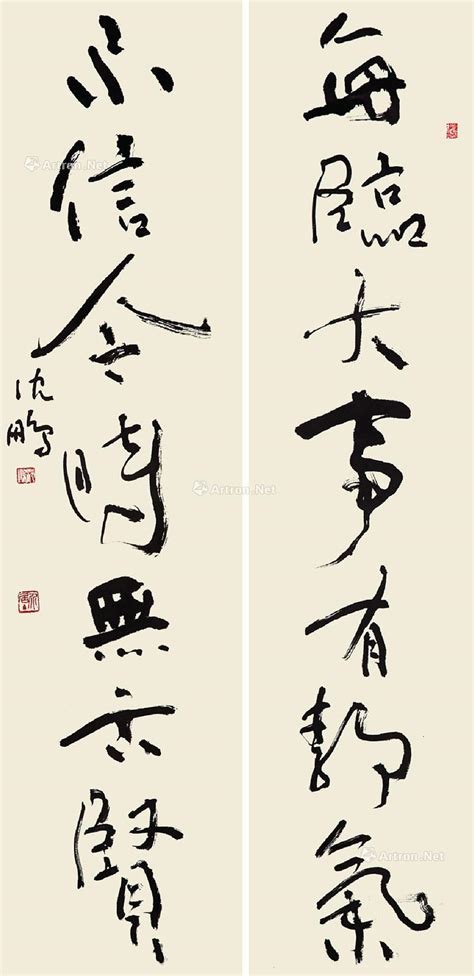 每臨大事有靜氣
不信今時無古賢
沈鵬
Artron.Net
Artron.Net
Artron.Net
Artron.Net